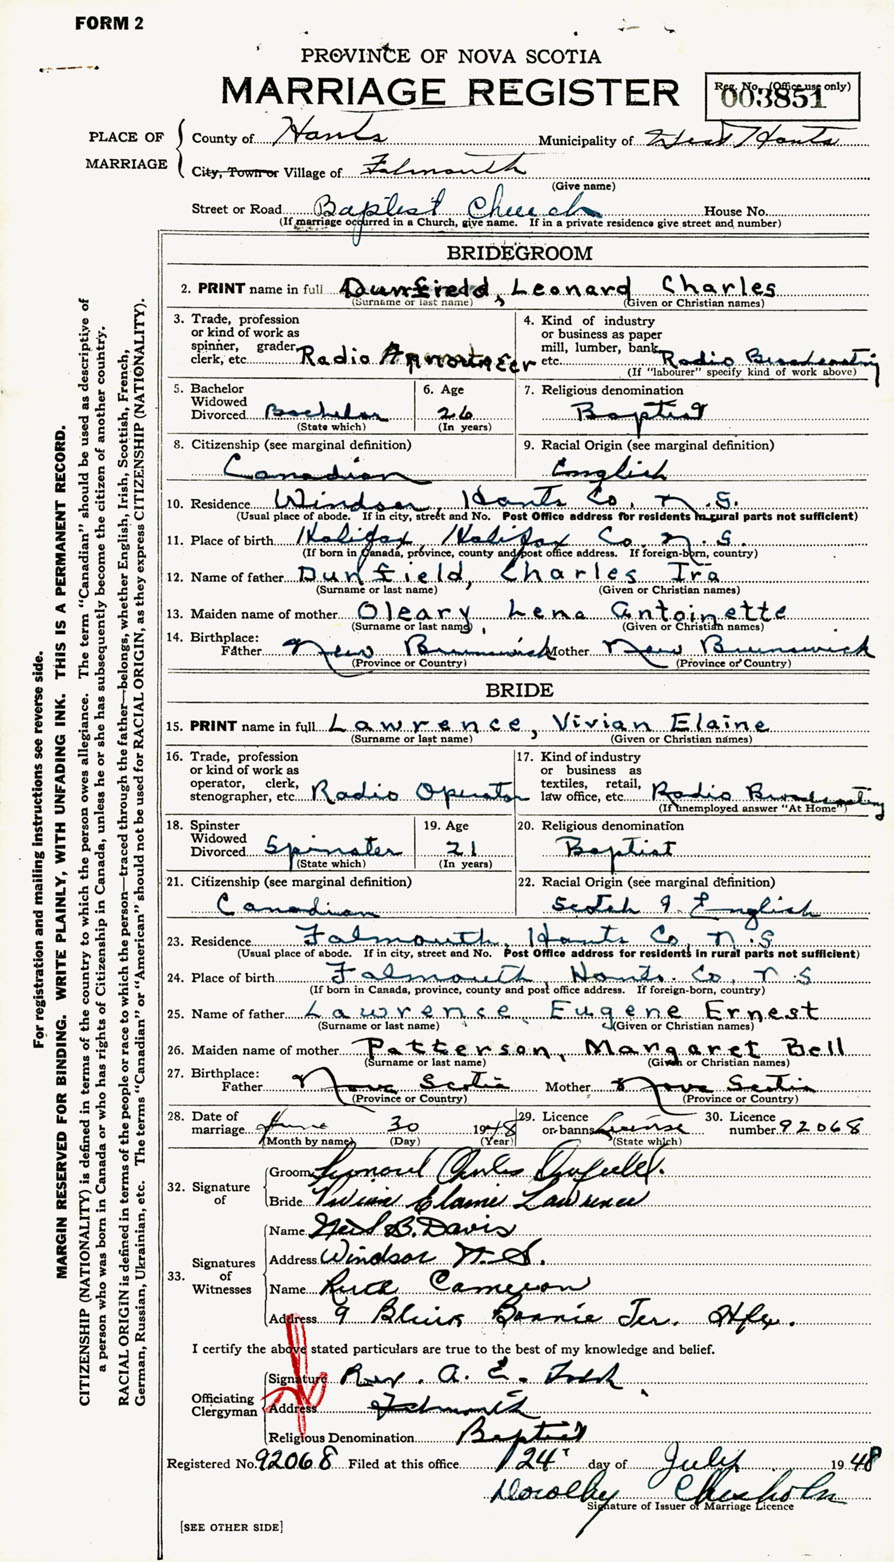 FORM 2
PROVINCE OF NOVA SCOTIA
MARRIAGE REGISTER
Reg. No. (Office use only)
003851
PLACE OF MARRIAGE
County of Hants Municipality of West Hants
City, Town or Village of Falmouth
(Give name)
Street or Road Baptist Church House No.
(If marriage occurred in a Church, give name. If in a private residence give street and number)
BRIDEGROOM
2. PRINT name in full Dunfield, Leonard Charles
(Surname or last name) (Given or Christian names)
3. Trade, profession
or kind of work as
spinner, grader,
clerk, etc. Radio Announcer
4. Kind of industry
or business as paper
mill, lumber, bank,
etc. Radio Broadcasting
(If "labourer" specify kind of work above)
5. Bachelor
Widowed
Divorced Bachelor
(State which)
6. Age
26
(In years)
7. Religious denomination
Baptist
8. Citizenship (see marginal definition)
Canadian
9. Racial Origin (see marginal definition)
English
10. Residence Windsor, Hants Co, N.S.
(Usual place of abode. If in city, street and No. Post Office address for residents in rural parts not sufficient)
11. Place of birth Halifax, Halifax Co. N.S.
(If born in Canada, province, county and post office address. If foreign-born, country)
12. Name of father Dunfield, Charles Ira
(Surname or last name) (Given or Christian names)
13. Maiden name of mother Oleary, Lena Antoinette
(Surname or last name) (Given or Christian names)
14. Birthplace:
Father New Brunswick Mother New Brunswick
(Province or Country) (Province or Country)
BRIDE
15. PRINT name in full Lawrence, Vivian Elaine
(Surname or last name) (Given or Christian names)
16. Trade, profession
or kind of work as
operator, clerk,
stenographer, etc. Radio Operator
17. Kind of industry
or business as
textiles, retail,
law office, etc. Radio Broadcasting
(If unemployed answer "At Home")
18. Spinster
Widowed
Divorced Spinster
(State which)
19. Age
21
(In years)
20. Religious denomination
Baptist
21. Citizenship (see marginal definition)
Canadian
22. Racial Origin (see marginal definition)
Scotch & English
23. Residence Falmouth, Hants Co, N.S
(Usual place of abode. If in city, street and No. Post Office address for residents in rural parts not sufficient)
24. Place of birth Falmouth, Hants. Co, N.S
(If born in Canada, province, county and post office address. If foreign-born, country)
25. Name of father Lawrence, Eugene Ernest
(Surname or last name) (Given or Christian names)
26. Maiden name of mother Patterson, Margaret Bell
(Surname or last name) (Given or Christian names)
27. Birthplace:
Father Nova Scotia Mother Nova Scotia
(Province or Country) (Province or Country)
28. Date of marriage June 30 1948
(Month by name) (Day) (Year)
29. Licence or banns License
(State which)
30. Licence number 92068
32. Signature of
Groom Leonard Charles Dunfield.
Bride Vivian Elaine Lawrence
33. Signatures of Witnesses
Name B. Davis
Address Windsor N.S.
Name Ruth Cameron
Address 9 Bonnie Ter. Hfx.
I certify the above stated particulars are true to the best of my knowledge and belief.
Officiating Clergyman
Signature Rev. A. E.
Address Falmouth
Religious Denomination Baptist
Registered No. 92068 Filed at this office 24 day of July 1948
Dorothy Chisholm
Signature of Issuer of Marriage Licence
[SEE OTHER SIDE]
For registration and mailing instructions see reverse side.
MARGIN RESERVED FOR BINDING. WRITE PLAINLY, WITH UNFADING INK. THIS IS A PERMANENT RECORD.
CITIZENSHIP (NATIONALITY) is defined in terms of the country to which the person owes allegiance. The term "Canadian" should be used as descriptive of
a person who was born in Canada or who has rights of Citizenship in Canada, unless he or she has subsequently become the citizen of another country.
RACIAL ORIGIN is defined in terms of the people or race to which the person—traced through the father—belongs, whether English, Irish, Scottish, French,
German, Russian, Ukrainian, etc. The terms "Canadian" or "American" should not be used for RACIAL ORIGIN, as they express CITIZENSHIP (NATIONALITY).